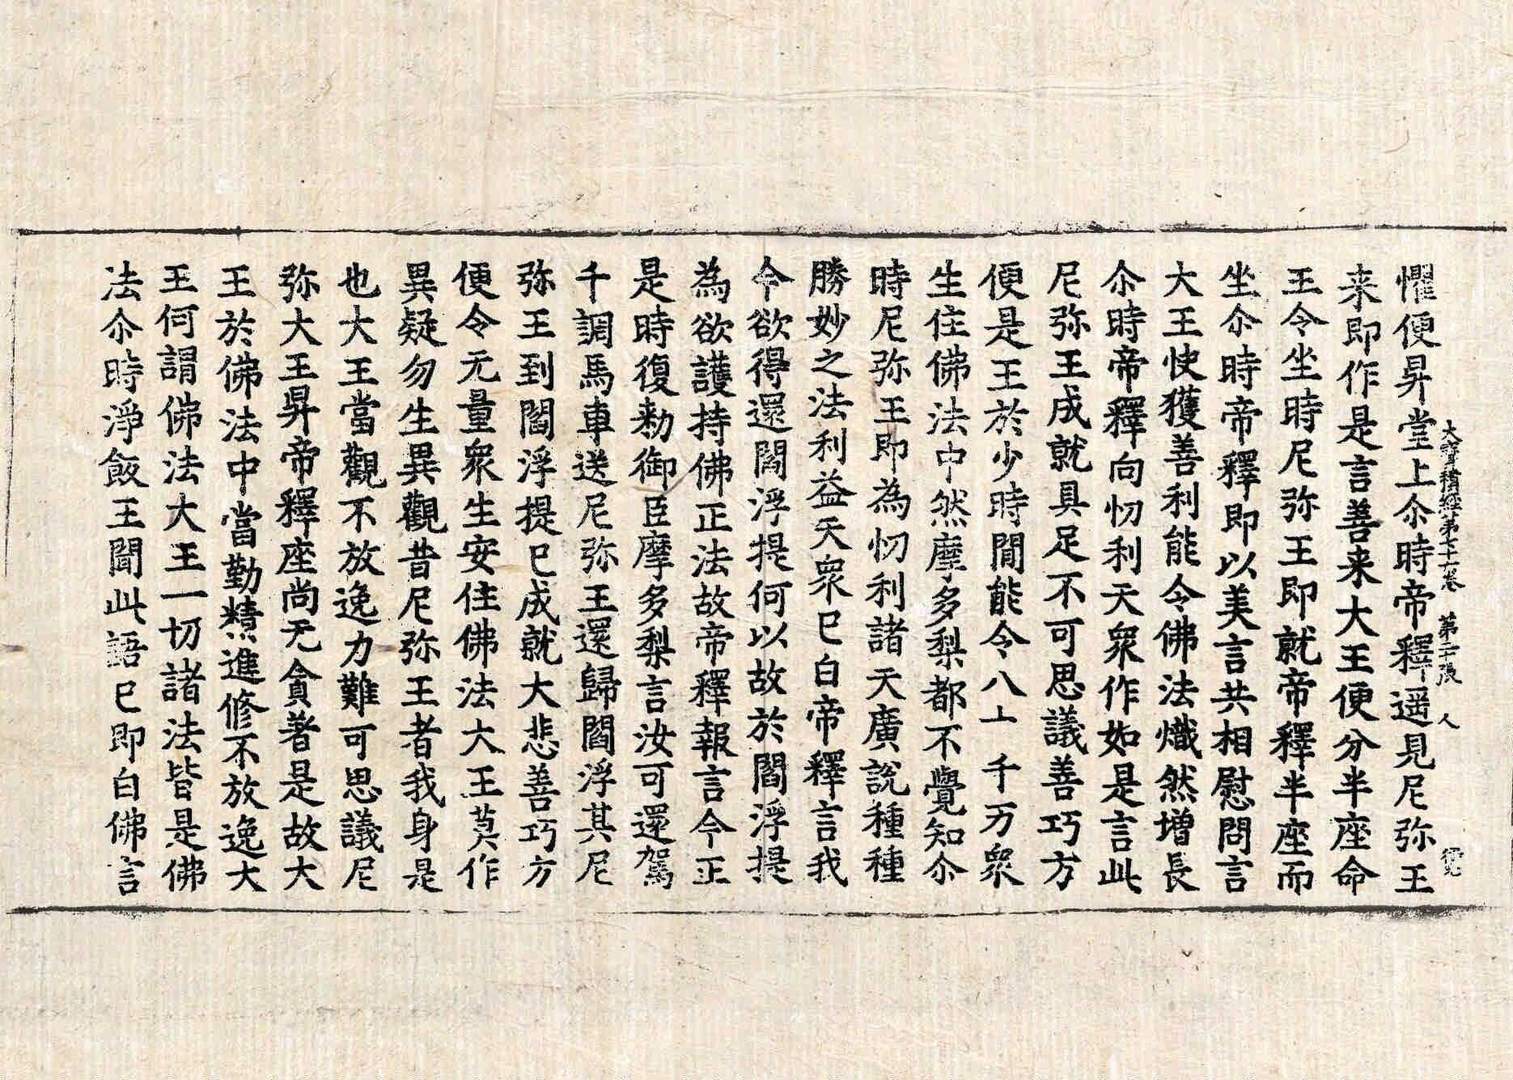 大寳積經第七十六卷 第 張 人
懼便昇堂上尒時帝釋遥見尼弥王
来即作是言善来大王便分半座命
王令坐時尼弥王即就帝釋半座而
坐尒時帝釋即以美言共相慰問言
大王快獲善利能令佛法熾然増長
尒時帝釋向忉利天衆作如是言此
尼弥王成就具足不可思議善巧方
便是王於少時間能令八十千万衆
生住佛法中然摩多梨都不覺知尒
時尼弥王即為忉利諸天廣說種種
勝妙之法利益天衆已白帝釋言我
今欲得還閻浮提何以故於閻浮提
為欲護持佛正法故帝釋報言今正
是時復勑御臣摩多梨言汝可還駕
千調馬車送尼弥王還歸閻浮其尼
弥王到閻浮提已成就大悲善巧方
便令无量衆生安住佛法大王莫作
異疑勿生異觀昔尼弥王者我身是
也大王當觀不放逸力難可思議尼
弥大王昇帝釋座尚无貪著是故大
王於佛法中當勤精進修不放逸大
王何謂佛法大王一切諸法皆是佛
法尒時淨飯王聞此語已即白佛言